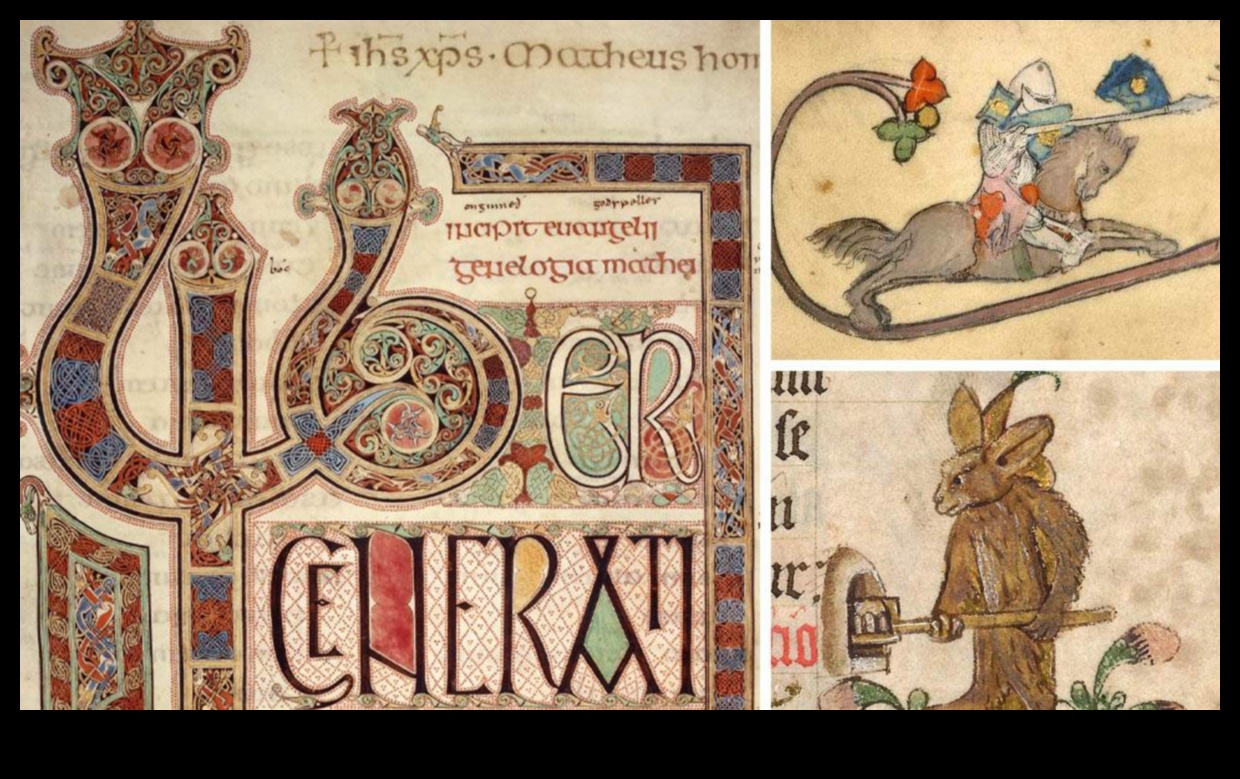 + ihs xps · Matheus hom
onginneð godspelles
incipit euangelii
genelogia mathei
boc
LibER
GENERATI
se